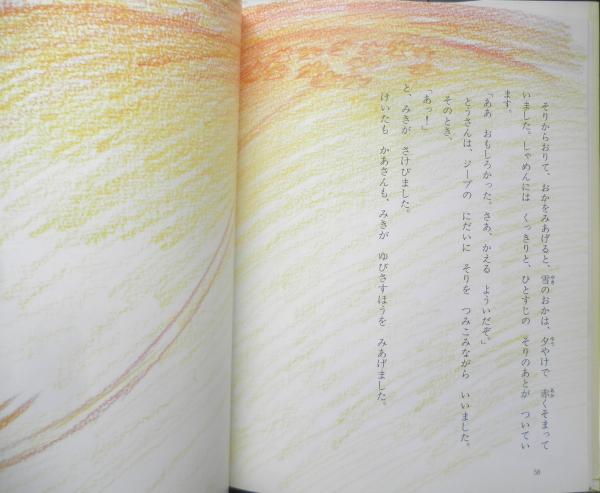 そりからおりて、おかをみあげると、雪のおかは、夕やけで 赤くそまって
いました。しゃめんには くっきりと、ひとすじの そりのあとが ついてい
ます。
「ああ おもしろかった。さあ、かえる よういだぞ。」
とうさんは、ジープの にだいに そりを つみこみながら いいました。
そのとき、
「あっ！」
と、みきが さけびました。
けいたも かあさんも、みきが ゆびさすほうを みあげました。
58